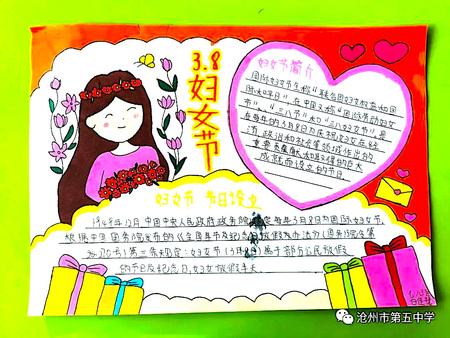 3.8
妇女节
妇女节简介
国际妇女节全称"联合国妇女权益和国
际和平日"，在中国又称"国际劳动妇女
节"、"三八节"和"三八妇女节"是
在每年的3月8日为庆祝妇女在经
济、政治和社会等领域作出的
重要贡献和取得的巨大
成就而设立的节日
妇女节 节日设立
1949年12月 中国中央人民政府政务院 每年3月8日为国际妇女节.
根据中国国务院发布的《全国年节及纪念日放假办法》(国务院令第
号)第三条规定:妇女节(3月8日)属于部分公民放假
的节日及纪念日,妇女放假半天
沧州市第五中学